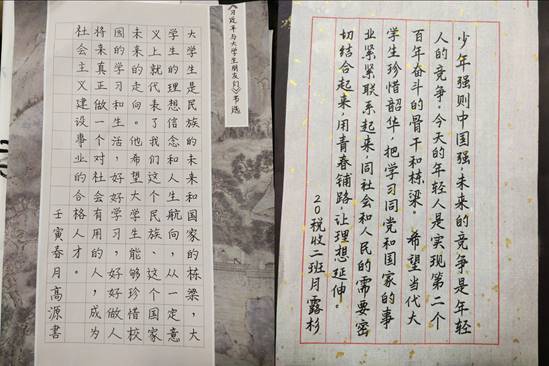 《习近平与大学生朋友们》节选
大学生是民族的未来和国家的栋梁，大
学生的理想信念和人生航向，从一定意
义上就代表了我们这个民族、这个国家
未来的走向。他希望大学生能够珍惜校
园的学习和生活，好好学习，好好做人
将来真正做一个对社会有用的人，成为
社会主义建设事业的合格人才。
壬寅春月高源書
少年强则中国强，未来的竞争是年轻
人的竞争。今天的年轻人是实现第二个
百年奋斗的骨干和栋梁。希望当代大
学生珍惜韶华，把学习同党和国家的事
业紧紧联系起来，同社会和人民的需要密
切结合起来，用青春铺路，让理想延伸。
20税收二班月露杉